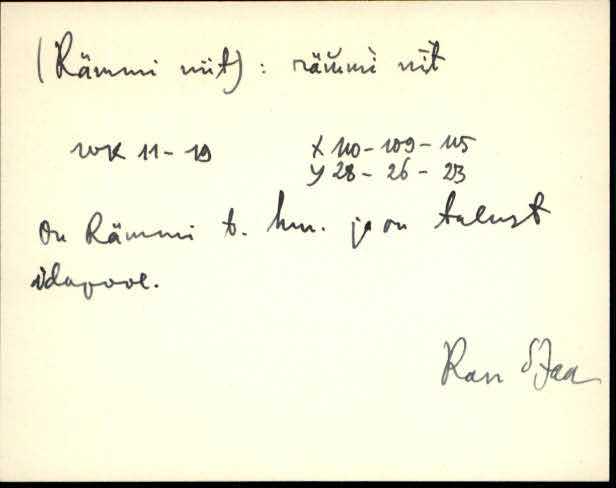 (Rämmi niit) : räm̆mi nī̆t
WK 11-19 X 110-109-115
Y 28-26-23
On Rämmi t. hm. ja on talust
idapool.
Ran SJaa